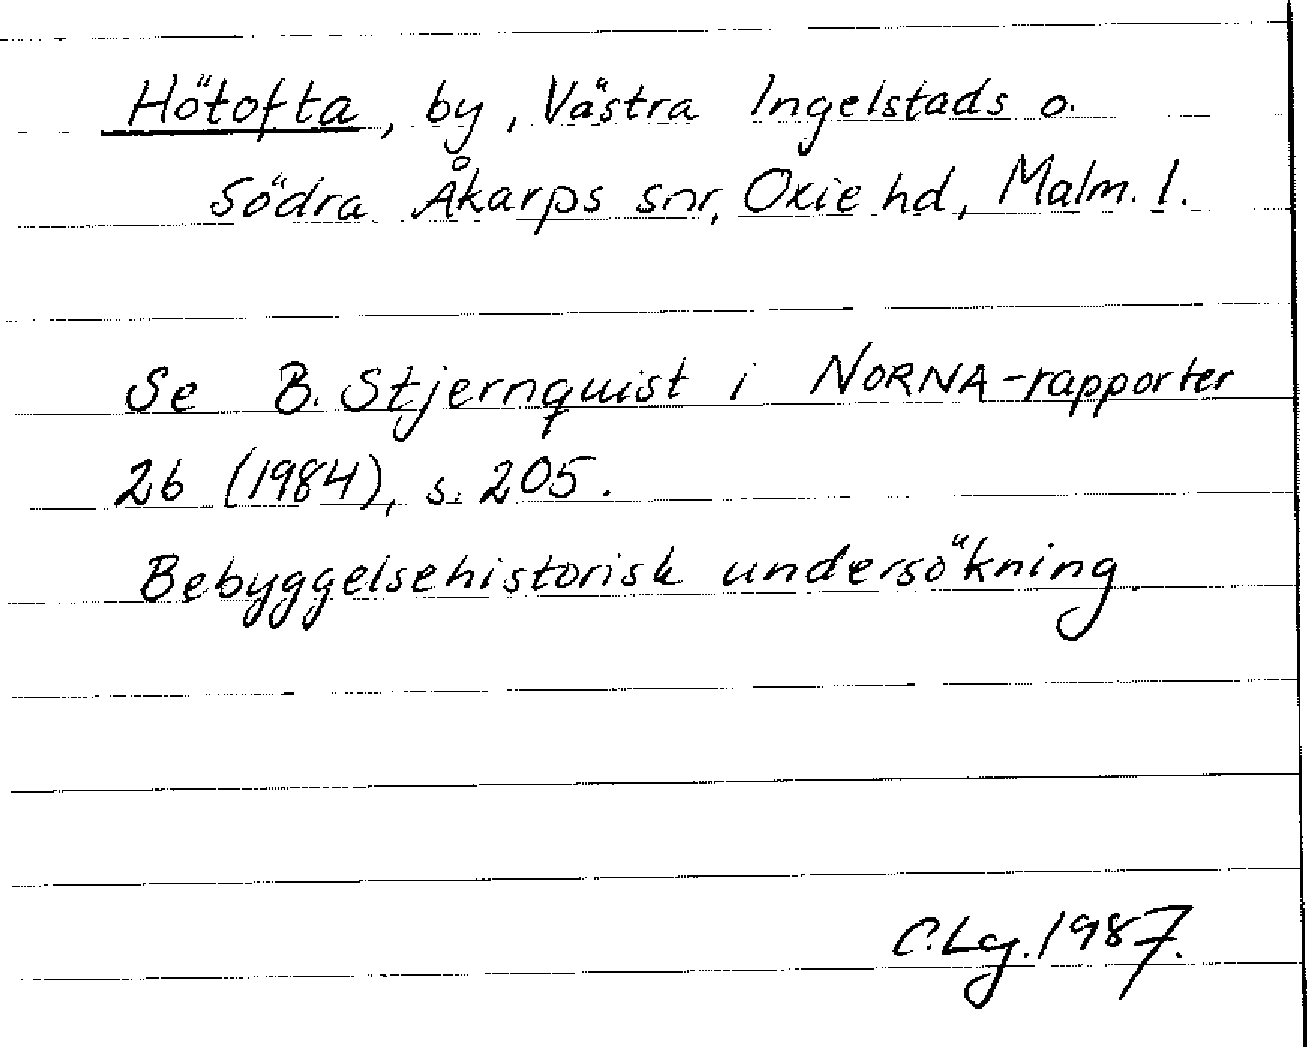 Hötofta, by, Västra Ingelstads o.
Södra Åkarps snr, Oxie hd, Malm. l.
Se B. Stjernquist i NORNA-rapporter
26 (1984), s. 205.
Bebyggelsehistorisk undersökning.
C.Lg. 1987.